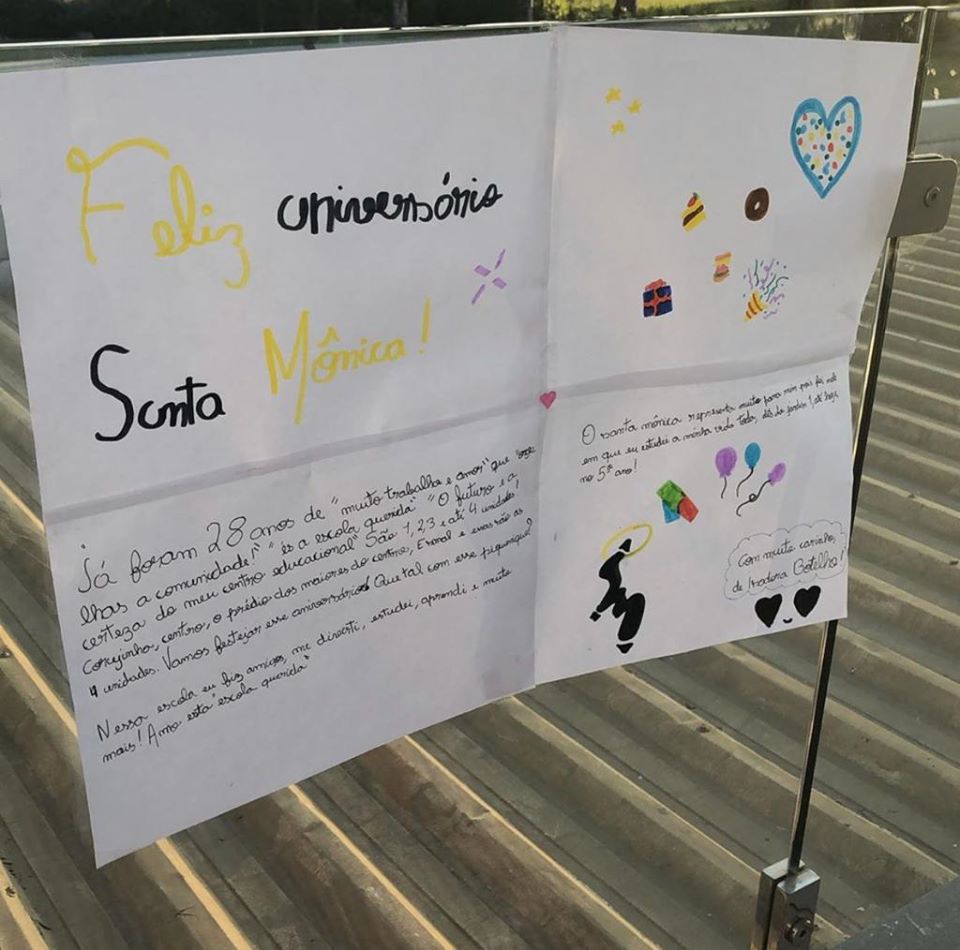 Feliz aniversário
Santa Mônica!
Já foram 28 anos de "muito trabalho e amor" que "orgu
lhas a comunidade!" "és a escola querida" "O futuro e a
certeza do meu centro educacional" São 1, 2, 3 e até 4 unidades!
centro, o prédio dos maiores do centro, e essas são as
4 unidades. Vamos festejar esse aniversário Que tal com esse piquenique?
Nessa escola eu fiz amigos, me diverti, estudei, aprendi e muito
mais! Amo esta "escola querida"
O santa mônica representa muito para mim pois foi nele
em que eu estudei a minha vida toda, dês do jardim 1, até hoje,
no 5º ano!
Com muito carinho,
de Isadora Botelho!